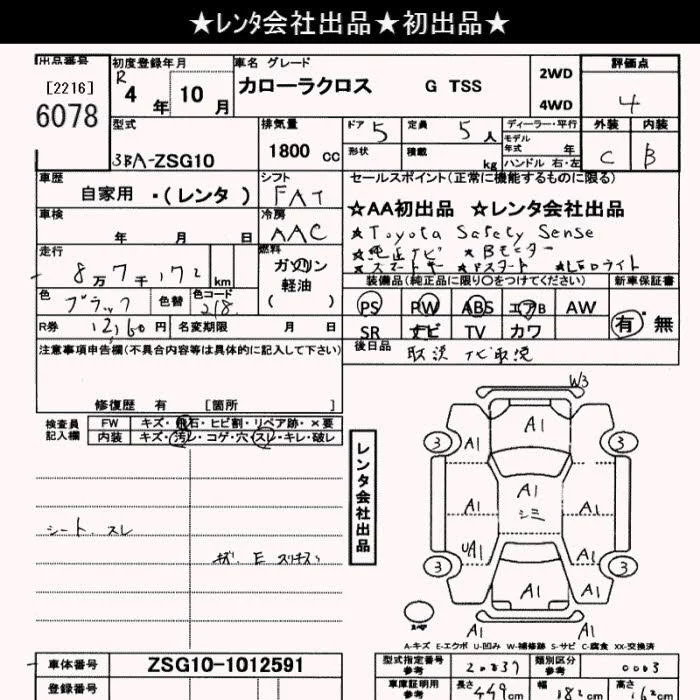 ★レンタ会社出品★初出品★
出品番号
[2216]
6078
初度登録年月
R 4 年 10 月
車名 グレード
カローラクロス G TSS
2WD
4WD
評価点
4
外装 内装
C B
型式
3BA-ZSG10
排気量
1800 cc
ドア 5
定員 5 人
形状
積載 kg
ディーラー・平行
モデル年式 年
ハンドル 右・左
車歴
自家用 ・(レンタ )
シフト
FAT
車検
年 月 日
冷房
AAC
走行
8万7千172 km
燃料
ガソリン
軽油
( )
色
ブラック
色替
色コード
218
R券 12,160 円
名変期限 月 日
セールスポイント(正常に機能するものに限る)
☆AA初出品 ☆レンタ会社出品
★Toyota Safety Sense
★純正ナビ ★Bモニター
★スマートキー ★Pスタート ★LEDライト
装備品(純正品に限り○をつけてください)
新車保証書
PS PW ABS エアB AW
SR ナビ TV カワ
有・無
後日品
取説 ナビ取説
注意事項申告欄(不具合内容等は具体的に記入して下さい)
修復歴 有 [箇所 ]
検査員記入欄
FW キズ・飛石・ヒビ割・リペア跡・×要
内装 キズ・汚レ・コゲ・穴・スレ・キレ・破レ
シート、スレ
レンタ会社出品
W3
A1
3 A1 3
A1
A1 シミ A1
A1
UA1 A1
3 3
A1
A1 A1
スペア
A-キズ E-エクボ U-凹み W-補修跡 S-サビ C-腐食 XX-交換済
車体番号
ZSG10-1012591
登録番号
型式指定番号 参考
20037
類別区分 参考
0003
車庫証明用 参考
長さ 449 cm
幅 182 cm
高さ 162 cm